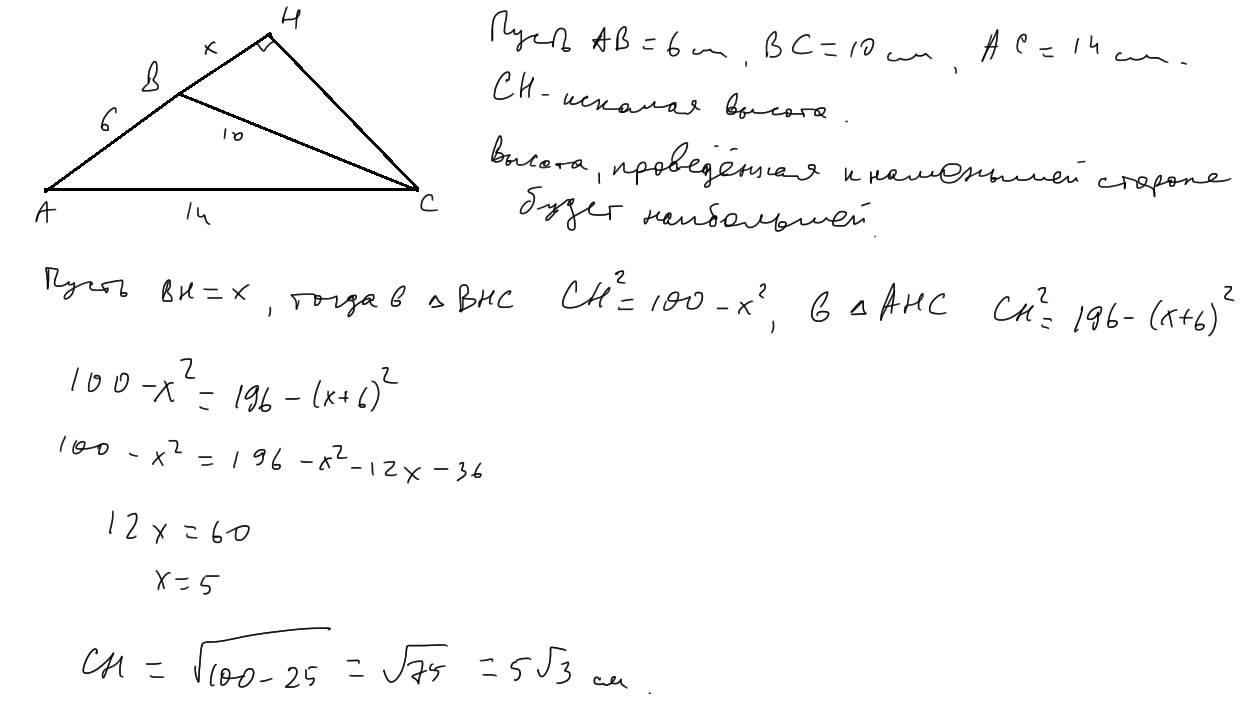 H
x
B
6
10
A
14
C
Пусть AB = 6 см, BC = 10 см, AC = 14 см.
CH - искомая высота.
Высота, проведённая к наменьшей стороне
будет наибольшей.
Пусть BH = x, тогда в △BHC CH² = 100 - x², в △AHC CH² = 196 - (x+6)²
100 - x² = 196 - (x+6)²
100 - x² = 196 - x² - 12x - 36
12x = 60
x = 5
CH = √(100 - 25) = √75 = 5√3 см.